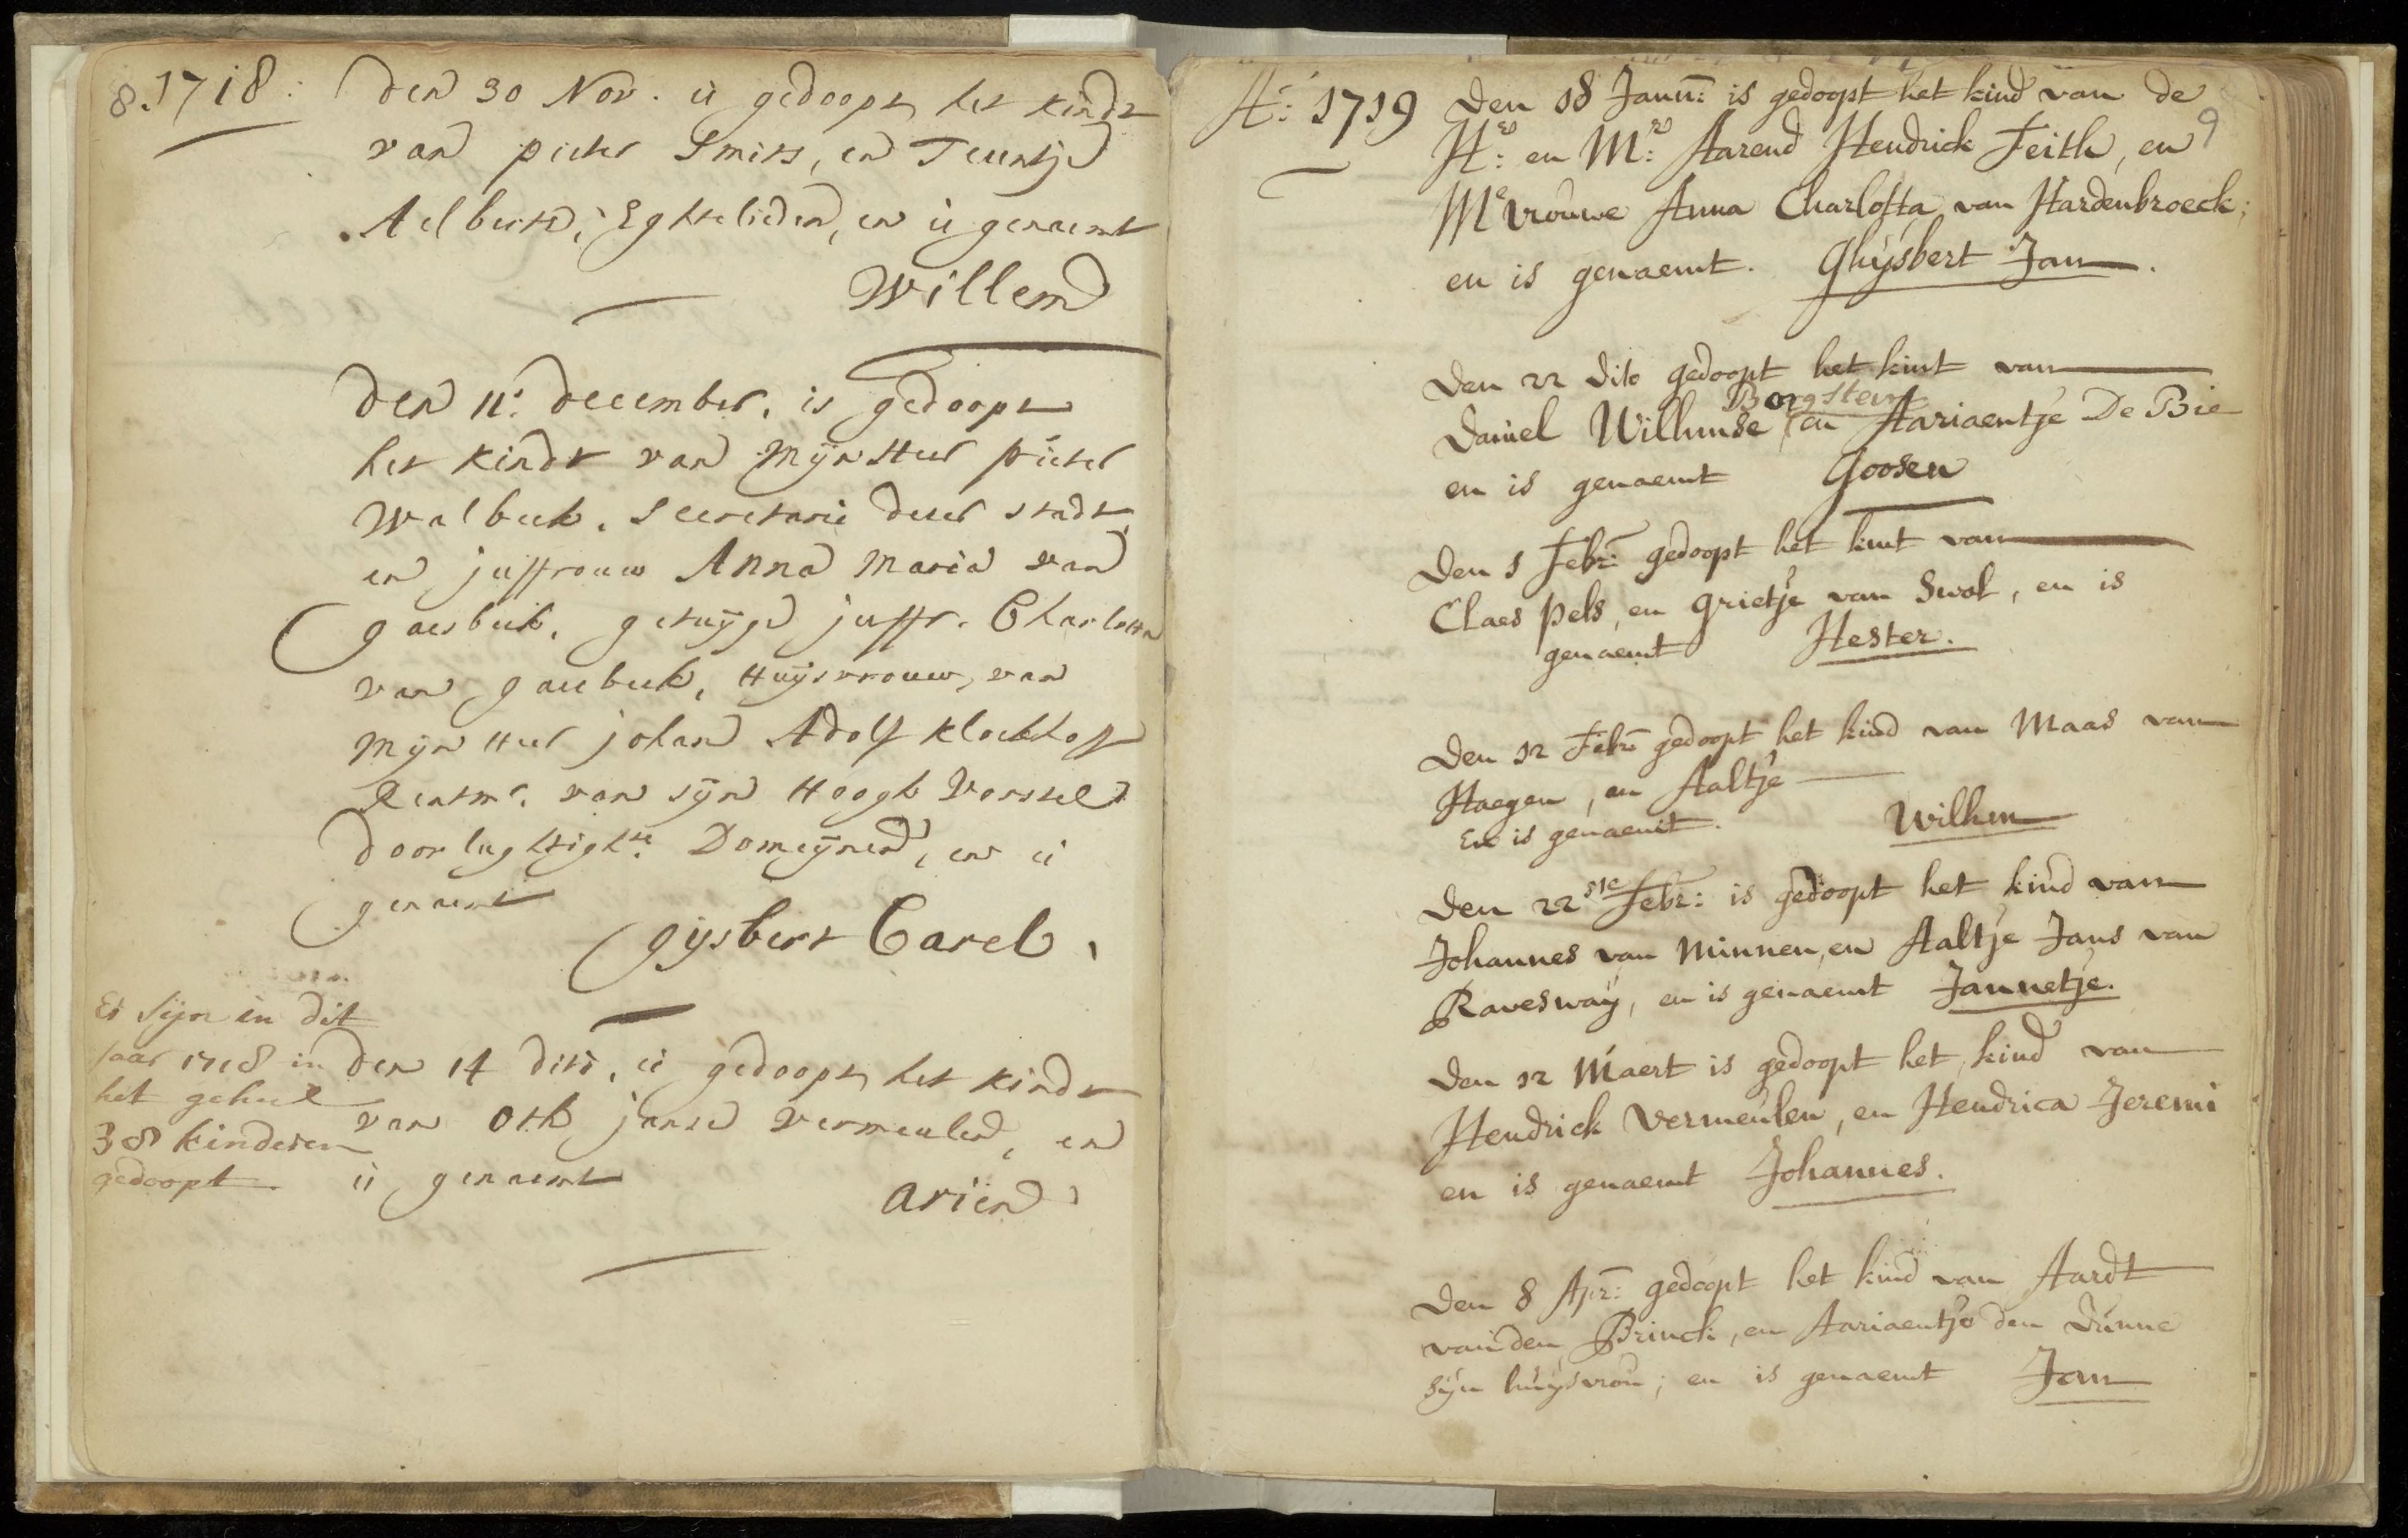 8. 1718:
Den 30 Nov. is gedoopt het kindt
van pieter Smits, en Teuntje
Aelberts, Eghtelieden, en is genaemt
Willem
Den 11: December, is gedoopt
het kindt van Mijn Heer pieter
Walbeek, Secretaris deser stadt,
en juffrouw Anna Maria van
gaesbeek, getuijge juffr. Charlotta
van gaesbeek, Huijsvrouw, van
Mijn Heer johan Adolf Klockhof
Rentmr. van sijn Hoogh Vorstel.
Doorlughtights. Domeijnen, en is
genaemt
Gijsbert Carel,
Er sijn in dit
jaar 1718 in
het geheel
38 kinderen
gedoopt
den 14 dito, is gedoopt het kindt
van Oth janse Vermeulen, en
is genaemt
Arien
Ao: 1719
9
Den 18 Janu: is gedoopt het kind van de
Hr: en Mr: Aarend Hendrick Feith, en
Mevrouwe Anna Charlotta van Hardenbroeck;
en is genaemt. Ghijsbert Jan.
Den 22 dito gedoopt het kint van
Borgstein
Daniel Willemse en Aariaentje De Bie
en is genaemt Goosen
Den 1 Febr: gedoopt het kint van
Claes Pels, en Grietje van Swol, en is
genaemt Hester.
Den 12 Febr: gedoopt het kind van Maas van
Haegen, en Aaltje
En is genaemt. Willem
Den 22ste Febr: is gedoopt het kind van
Johannes van Minnen, en Aaltje Jans van
Raveswaij, en is genaemt Jannetje.
Den 12 Maert is gedoopt het kind van
Hendrick Vermeulen, en Hendrica Jeremi
en is genaemt Johannes.
Den 8 Apr: gedoopt het kind van Aardt
van den Brinck, en Aariaentje den Dunne
sijn huijsvrou; en is genaemt Jan